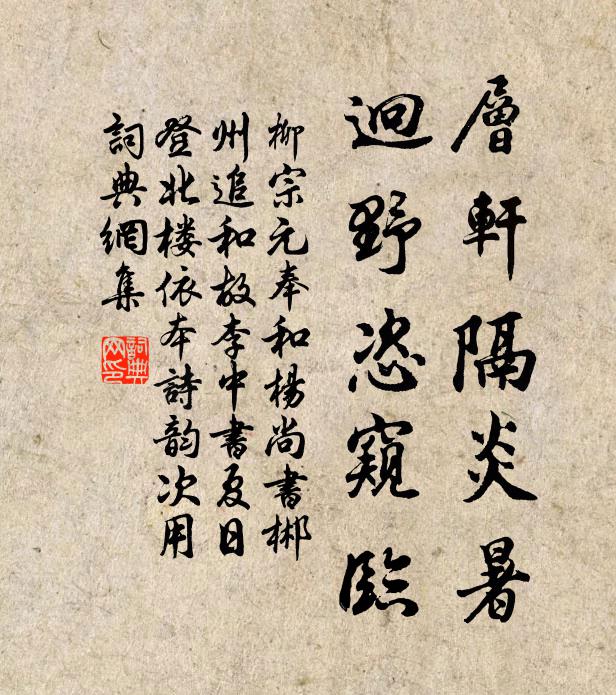 層軒隔炎暑
迥野恣窺臨
柳宗元奉和楊尚書郴
州追和故李中書夏日
登北楼依本詩韵次用
詞典網集
詞典網印